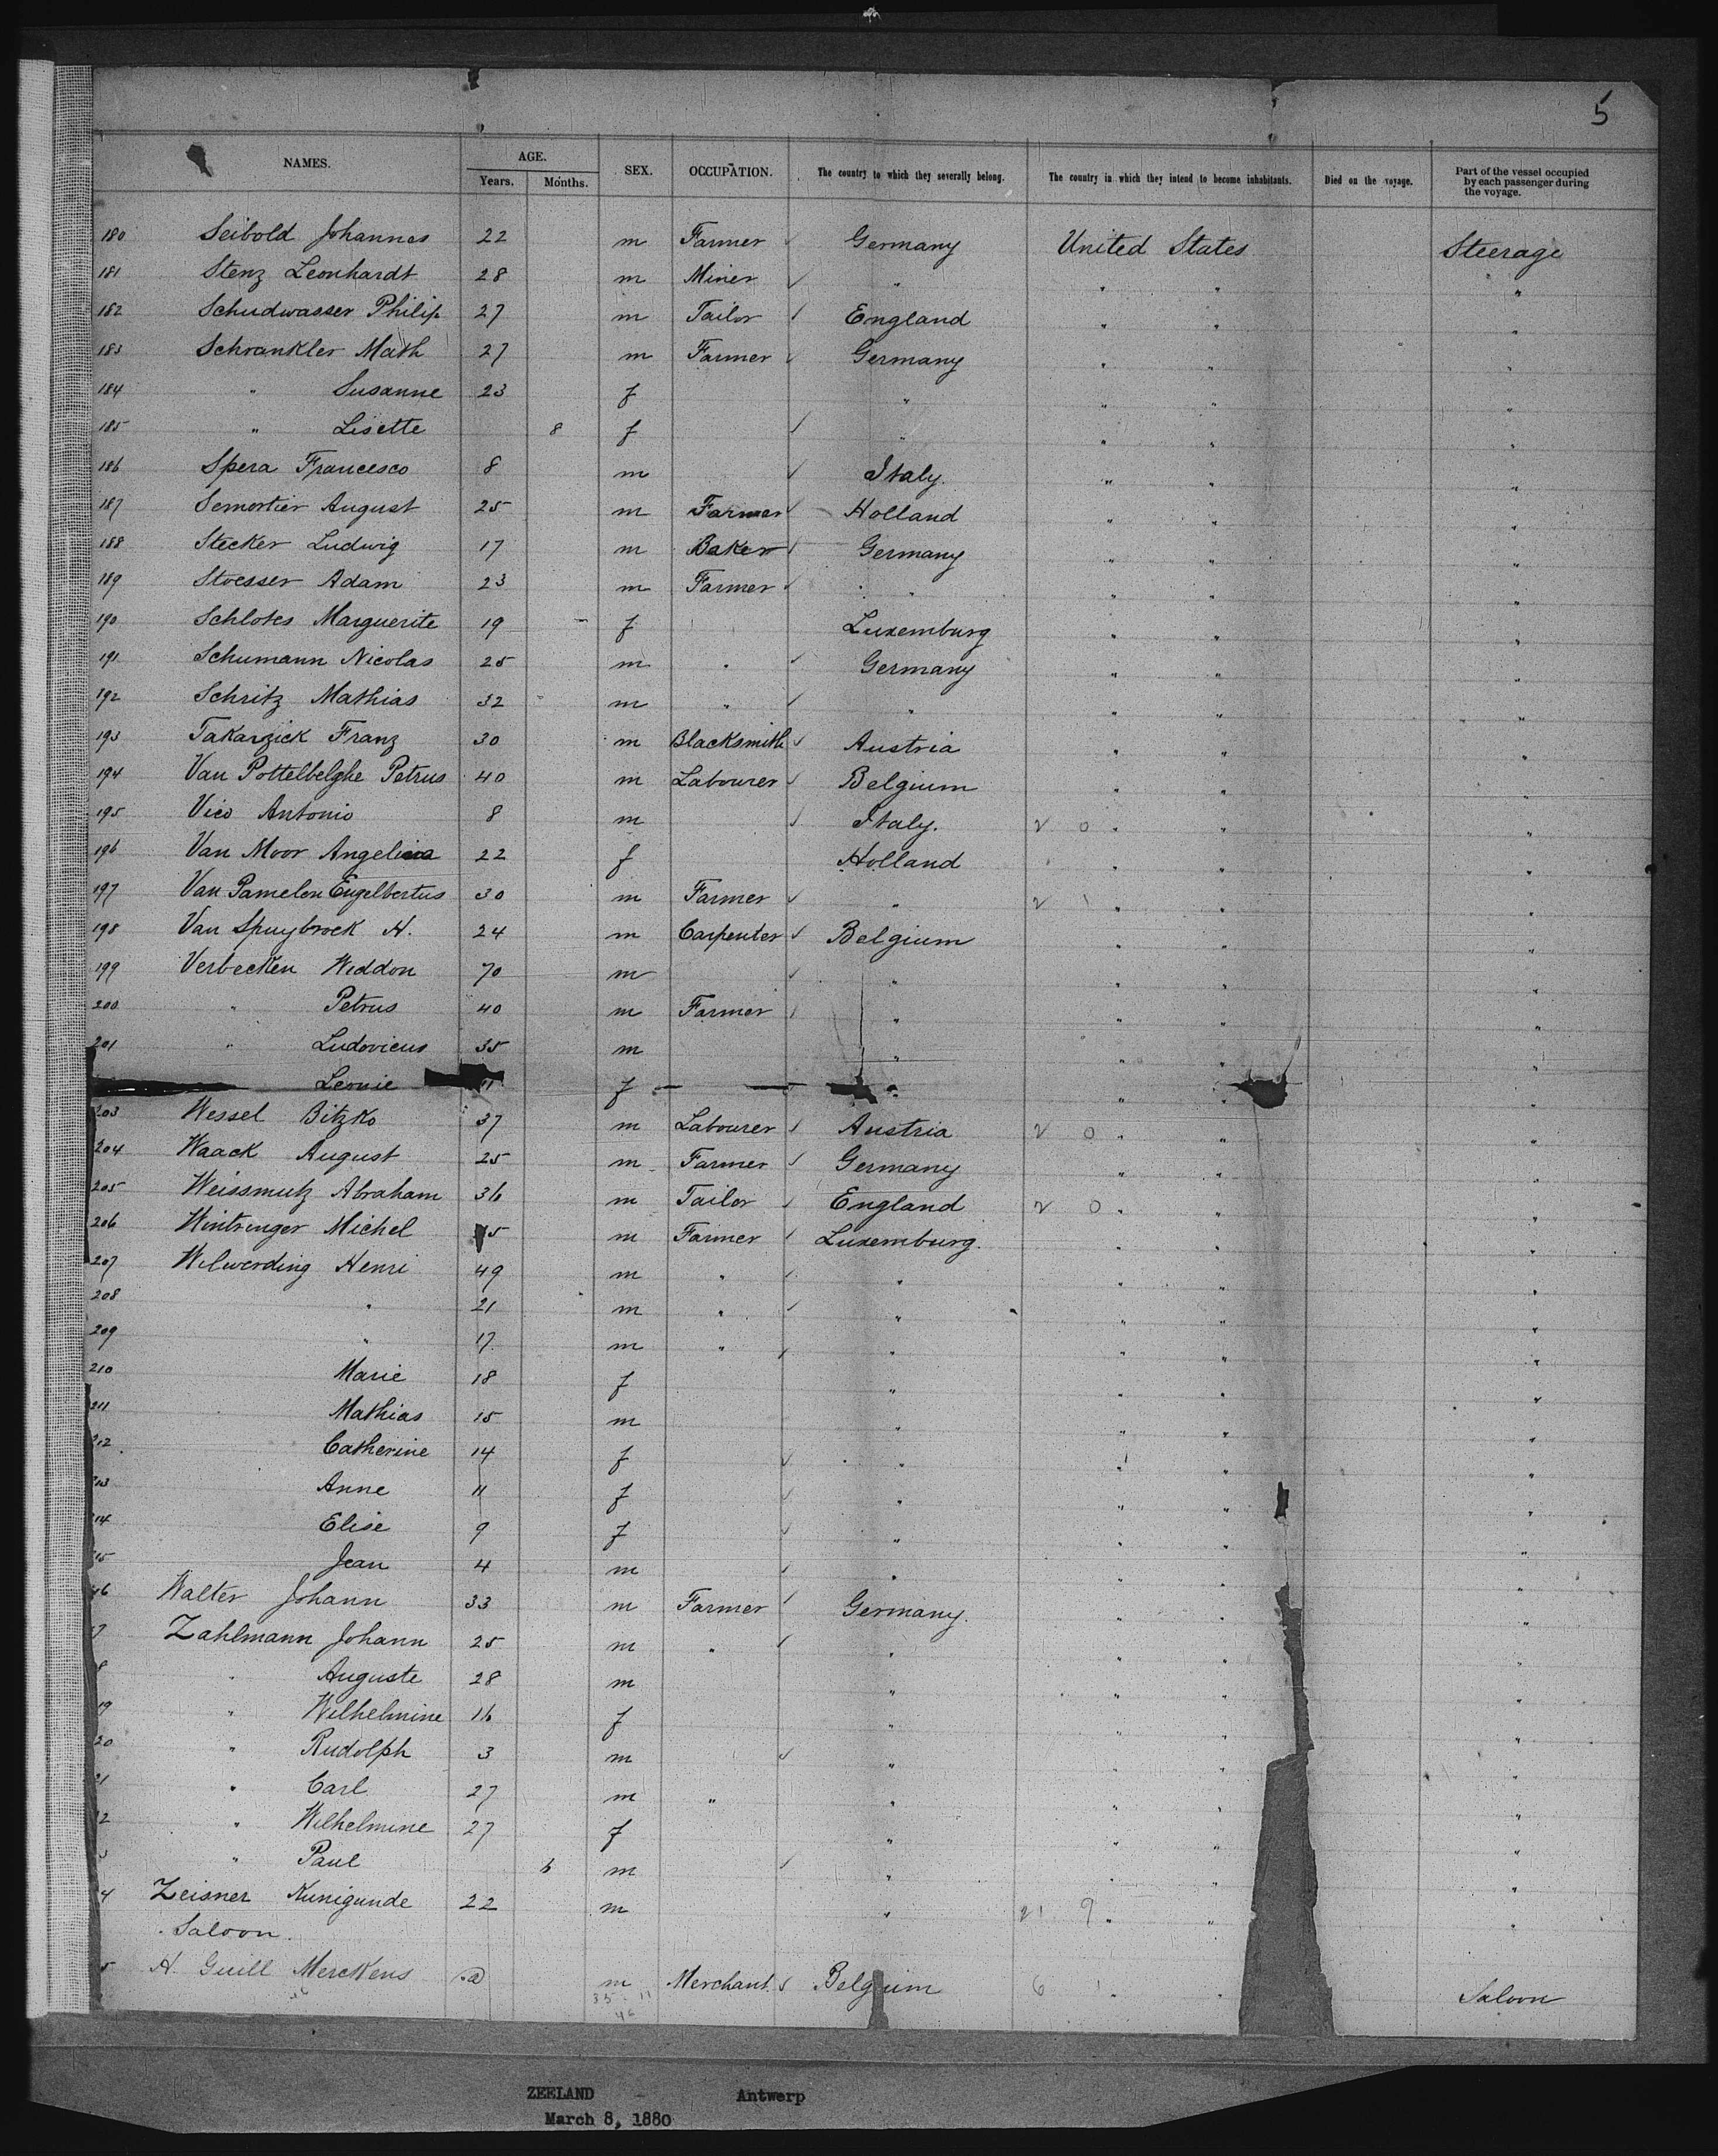 5
NAMES. AGE. SEX. OCCUPATION. The country to which they severally belong. The country in which they intend to become inhabitants. Died on the voyage. Part of the vessel occupied by each passenger during the voyage.
Years. Months.
180 Seibold Johannes 22 m Farmer Germany United States Steerage
181 Stenz Leonhardt 28 m Miner " " " "
182 Schudwasser Philip 27 m Tailor England " " "
183 Schrankler Math 27 m Farmer Germany " " "
184 " Susanne 23 f " " " "
185 " Lisette 8 f " " " "
186 Spera Francesco 8 m Italy. " " "
187 Semortier August 25 m Farmer Holland " " "
188 Stecker Ludwig 17 m Baker Germany " " "
189 Stoesser Adam 23 m Farmer " " " "
190 Schlotes Marguerite 19 f Luxemburg " " "
191 Schumann Nicolas 25 m " Germany " " "
192 Schritz Mathias 32 m " " " " "
193 Takarzick Franz 30 m Blacksmith Austria " " "
194 Van Pottelbelghe Petrus 40 m Labourer Belgium " " "
195 Vico Antonio 8 m Italy. 2 0 " " "
196 Van Moor Angelina 22 f Holland " " "
197 Van Pamelen Engelbertus 30 m Farmer " 2 1 " " "
198 Van Spuybrock H. 24 m Carpenter Belgium " " "
199 Verbecken Weddon 70 m " " " "
200 " Petrus 40 m Farmer " " " "
201 " Ludovicus 35 m " " " "
Leonie 11 f " " " "
203 Wessel Bitzko 37 m Labourer Austria 2 0 " " "
204 Waack August 25 m Farmer Germany " " "
205 Weissmutz Abraham 36 m Tailor England 2 0 " " "
206 Wintringer Michel 5 m Farmer Luxemburg. " " "
207 Wilwerding Henri 49 m " " " " "
208 " 21 m " " " " "
209 " 17 m " " " " "
210 Marie 18 f " " " "
211 Mathias 15 m " " " "
212 Catherine 14 f " " " "
213 Anne 11 f " " " "
14 Elise 9 f " " " "
15 Jean 4 m " " " "
16 Walter Johann 33 m Farmer Germany. " " "
7 Zahlmann Johann 25 m " " " " "
8 " Auguste 28 m " " " "
19 " Wilhelmine 16 f " " " "
20 " Rudolph 3 m " " " "
21 " Carl 27 m " " " " "
2 " Wilhelmine 27 f " " " "
3 " Paul 6 m " " " "
4 Zeisner Kunigunde 22 m " 21 9 " " "
Saloon.
5 H. Guill Merckens a m Merchant Belgium 6 1 " " Saloon
35 - 11
46
ZEELAND - Antwerp
March 8, 1880